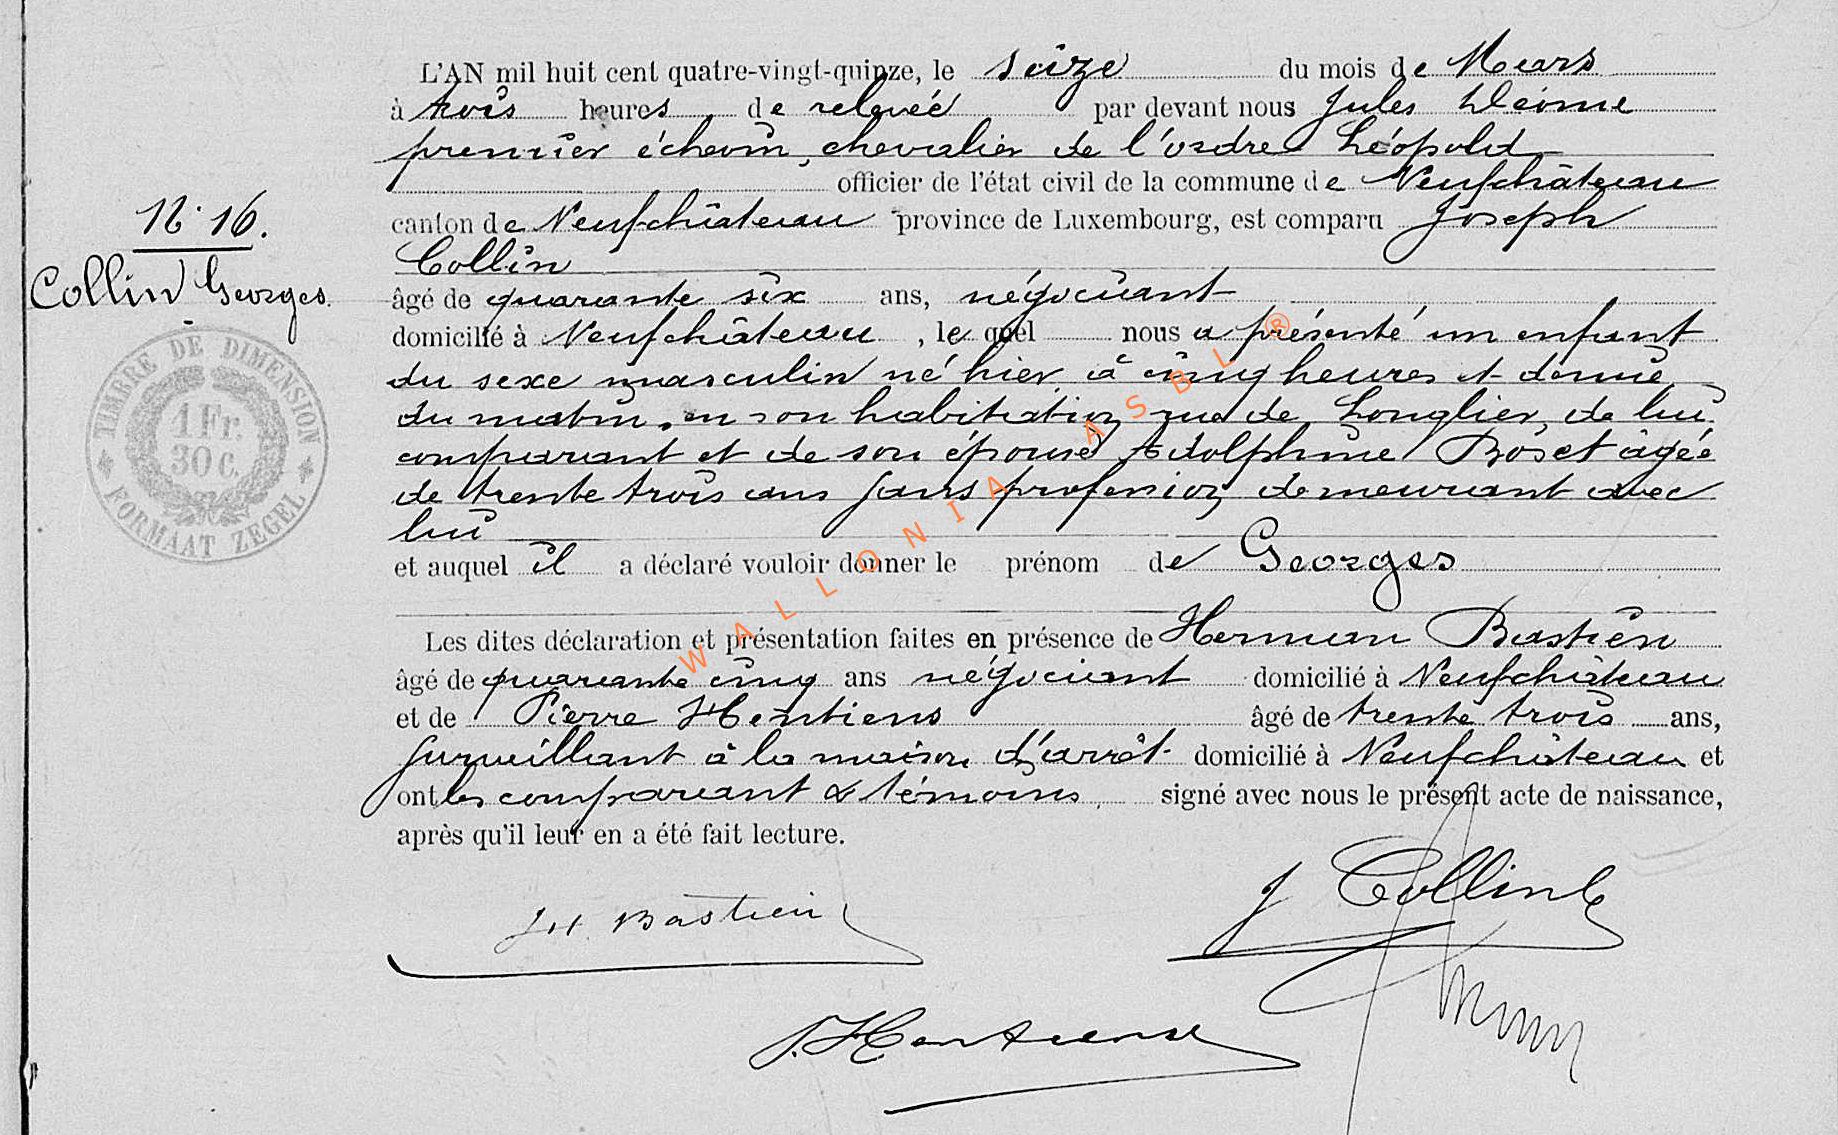 L'AN mil huit cent quatre-vingt-quinze, le seize du mois de Mars
à trois heures de relevée par devant nous Jules
premier échevin, chevalier de l'ordre Léopold
officier de l'état civil de la commune de Neufchâteau
canton de Neufchâteau province de Luxembourg, est comparu Joseph
Collin
âgé de quarante six ans, négociant
domicilié à Neufchâteau, le quel nous a présenté un enfant
du sexe masculin né hier à cinq heures et demie
du matin, en son habitation rue de Longlier, de lui
comparant et de son épouse Adolphine Boset âgée
de trente trois ans sans profession, demeurant avec
lui
et auquel il a déclaré vouloir donner le prénom de Georges
Les dites déclaration et présentation faites en présence de Herman Bastien
âgé de quarante cinq ans négociant domicilié à Neufchâteau
et de Pierre Hentiens âgé de trente trois ans,
surveillant à la maison d'arrêt domicilié à Neufchâteau et
ont les comparant & témoins, signé avec nous le présent acte de naissance,
après qu'il leur en a été fait lecture.
N° 16.
Collin Georges.
TIMBRE DE DIMENSION
1 Fr.
30 C.
FORMAAT ZEGEL
WALLONIA ASBL ®
J Collin
H. Bastien
P. Hentiens